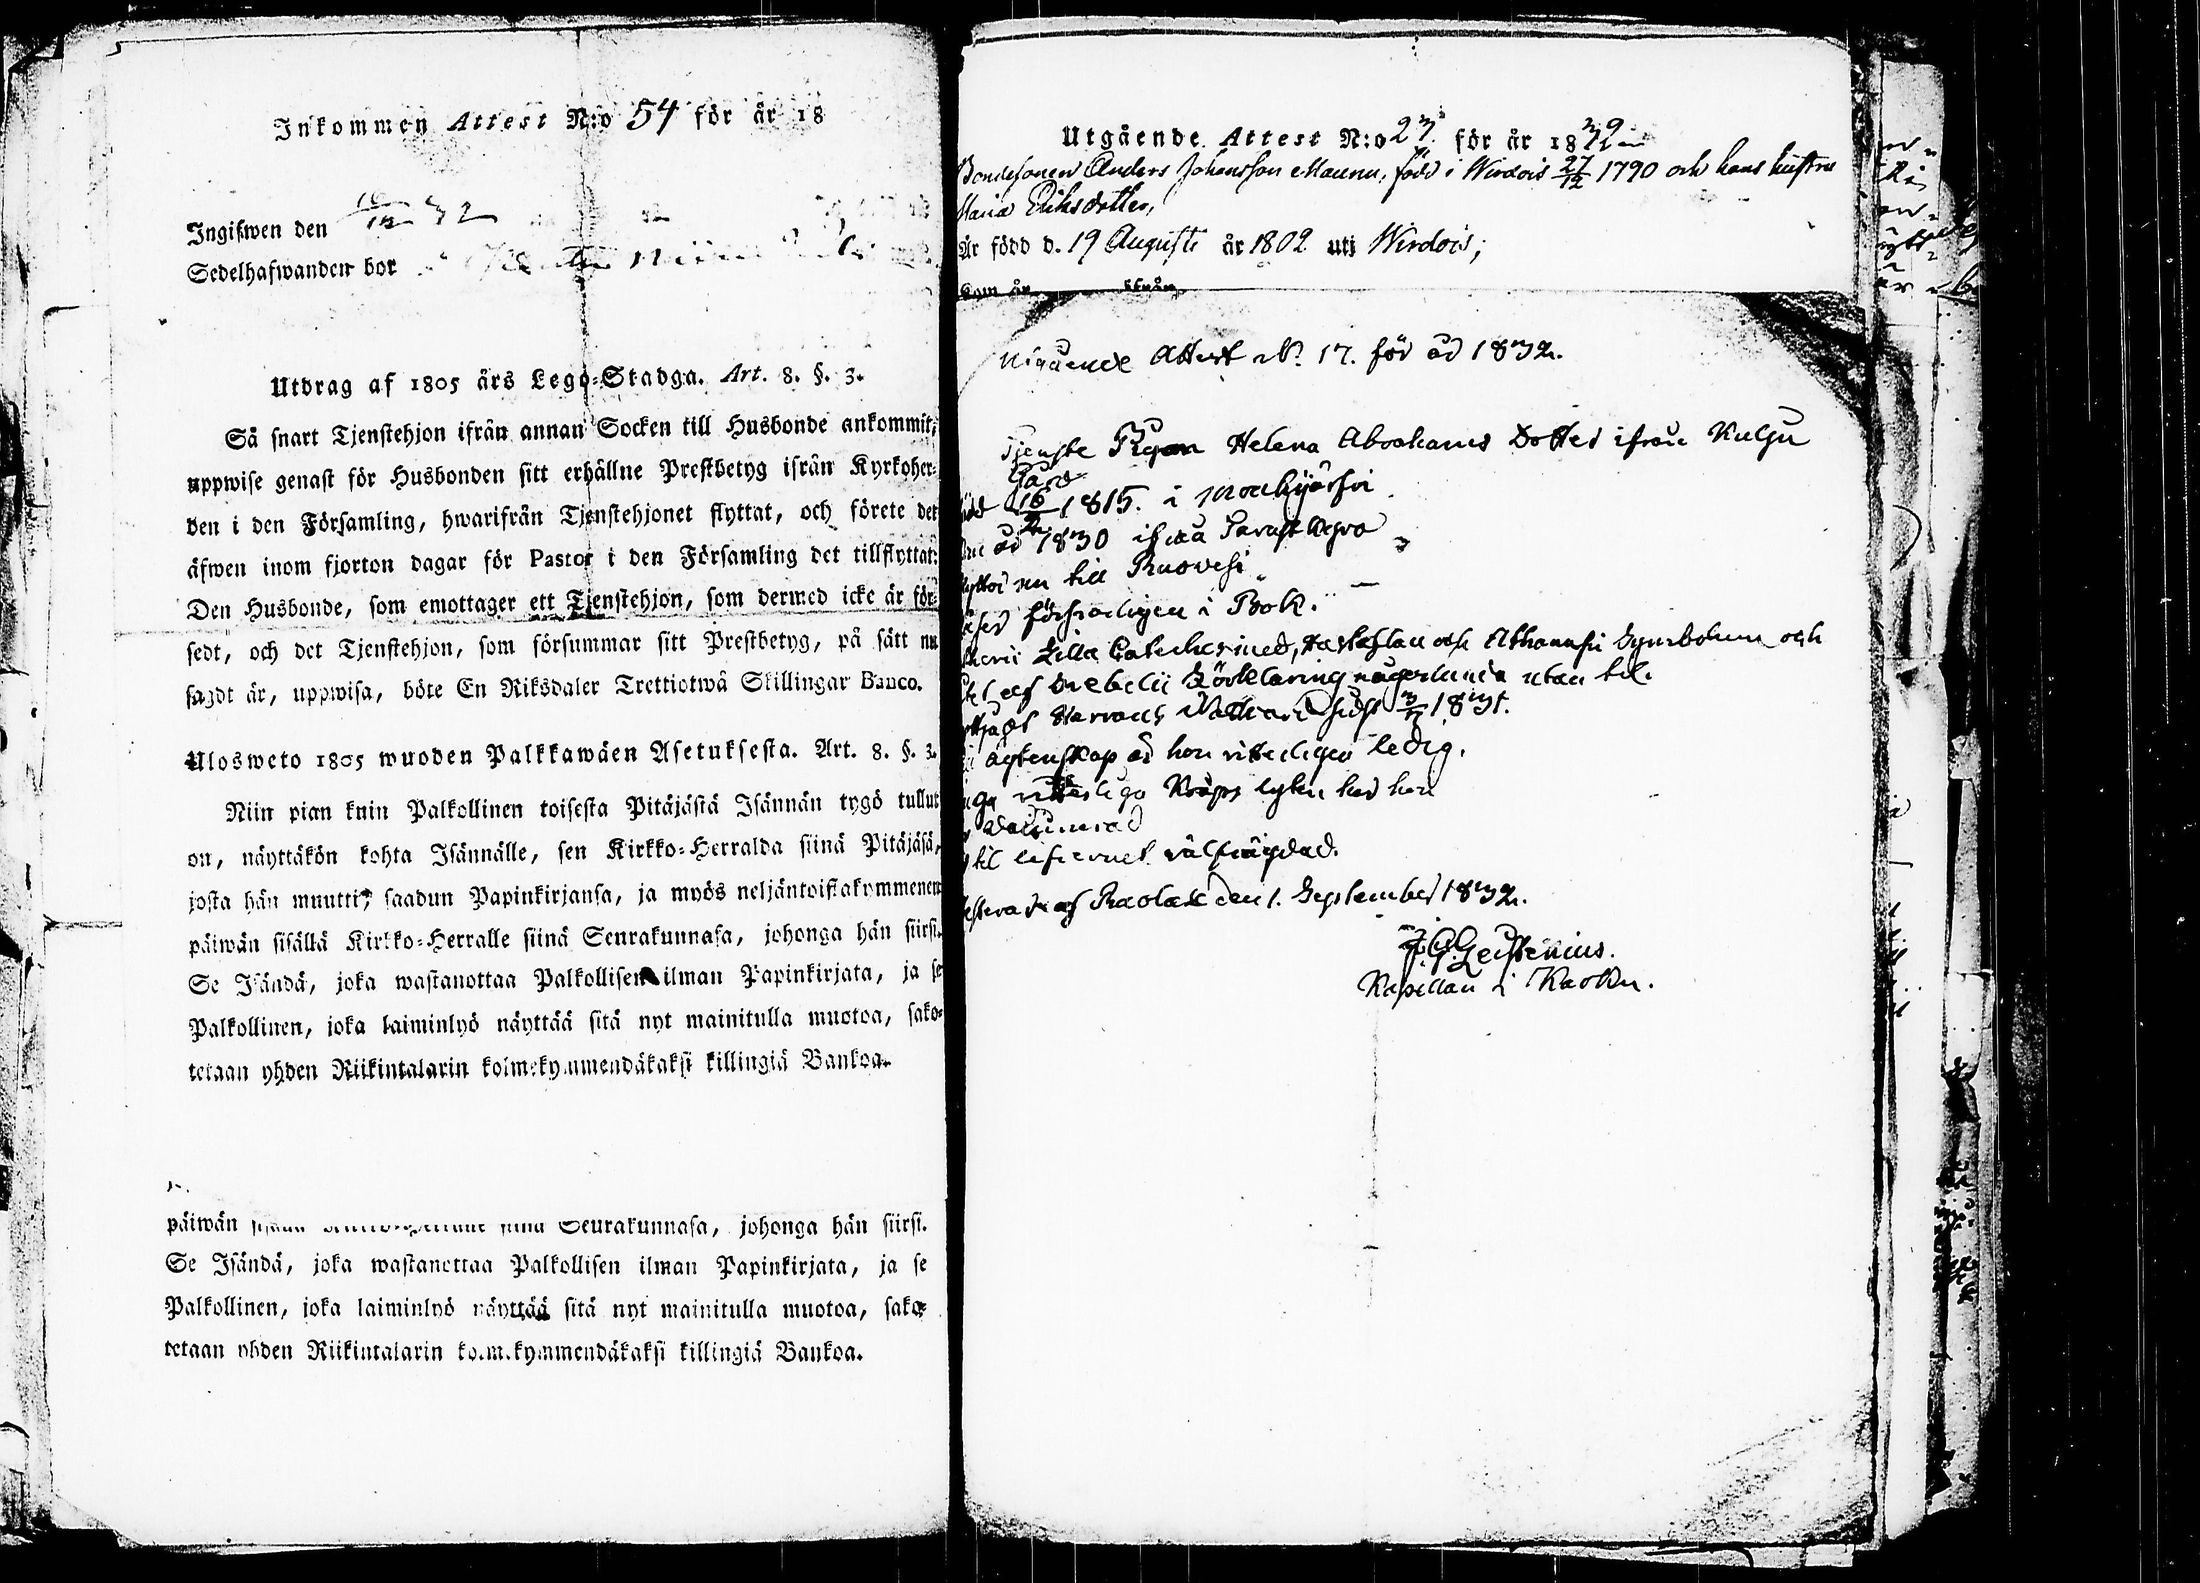 Inkommen Attest N:o 54 för år 18
Ingifwen den 32
Sedelhafwanden bor
Utdrag af 1805 års Lego-Stadga. Art. 8. §. 3.
Så snart Tjenstehjon ifrån annan Socken till Husbonde ankommit,
uppwise genast för Husbonden sitt erhållne Prestbetyg ifrån Kyrkoher-
den i den Församling, hwarifrån Tjenstehjonet flyttat, och förete det
äfwen inom fjorton dagar för Pastor i den Församling det tillflyttat.
Den Husbonde, som emottager ett Tjenstehjon, som dermed icke är för-
sedt, och det Tjenstehjon, som försummar sitt Prestbetyg, på sätt nu
sagdt är, uppwisa, böte En Riksdaler Trettiotwå Skillingar Banco.
Ulosweto 1805 wuoden Palkkawäen Asetuksesta. Art. 8. §. 3.
Niin pian kuin Palkollinen toisesta Pitäjästä Isännän tygö tullut
on, näyttäkön kohta Isännälle, sen Kirkko-Herralda siinä Pitäjäsä,
josta hän muutti, saadun Papinkirjansa, ja myös neljäntoistakymmenen
päiwän sisällä Kirkko-Herralle siinä Seurakunnasa, johonga hän siirsi.
Se Isändä, joka wastanottaa Palkollisen ilman Papinkirjata, ja se
Palkollinen, joka laiminlyö näyttää sitä nyt mainitulla muotoa, sako-
tetaan yhden Riikintalarin kolmekymmendäkaksi killingiä Bankoa.
päiwän Seurakunnasa, johonga hän siirsi.
Se Isändä, joka wastanottaa Palkollisen ilman Papinkirjata, ja se
Palkollinen, joka laiminlyö näyttää sitä nyt mainitulla muotoa, sako-
tetaan yhden Riikintalarin kolmekymmendäkaksi killingiä Bankoa.
Utgående Attest N:o 23 för år 1832
Bondesonen Anders Johansson Maunu, född i Wirdois 27/12 1790 och hans hustru
Maria Eriksdotter,
Är född d. 19 Augusti år 1802 uti Wirdois;
som är ifrån
Attest N:o 17. för år 1832.
Tjenste Pigan Helena Abrahams Dotter ifrån Kulju
Gård
16/2 1815. i Mouhijärfvi
år 1830 ifrån Tarvast
nu till Ruovesi
försvarligen i Bok.
Lilla Catechesined, Hustaflan och Athanasii Symbolum och
af Svebelii Förklaring någorlunda utan til.
Herrans Nattvard sidst 1831.
ägtenskap är hon vitterligen ledig.
vitterliga Kropps lyten har hon
til lefvernet välfrägdad.
den 1. September 1832.
Kapellan i